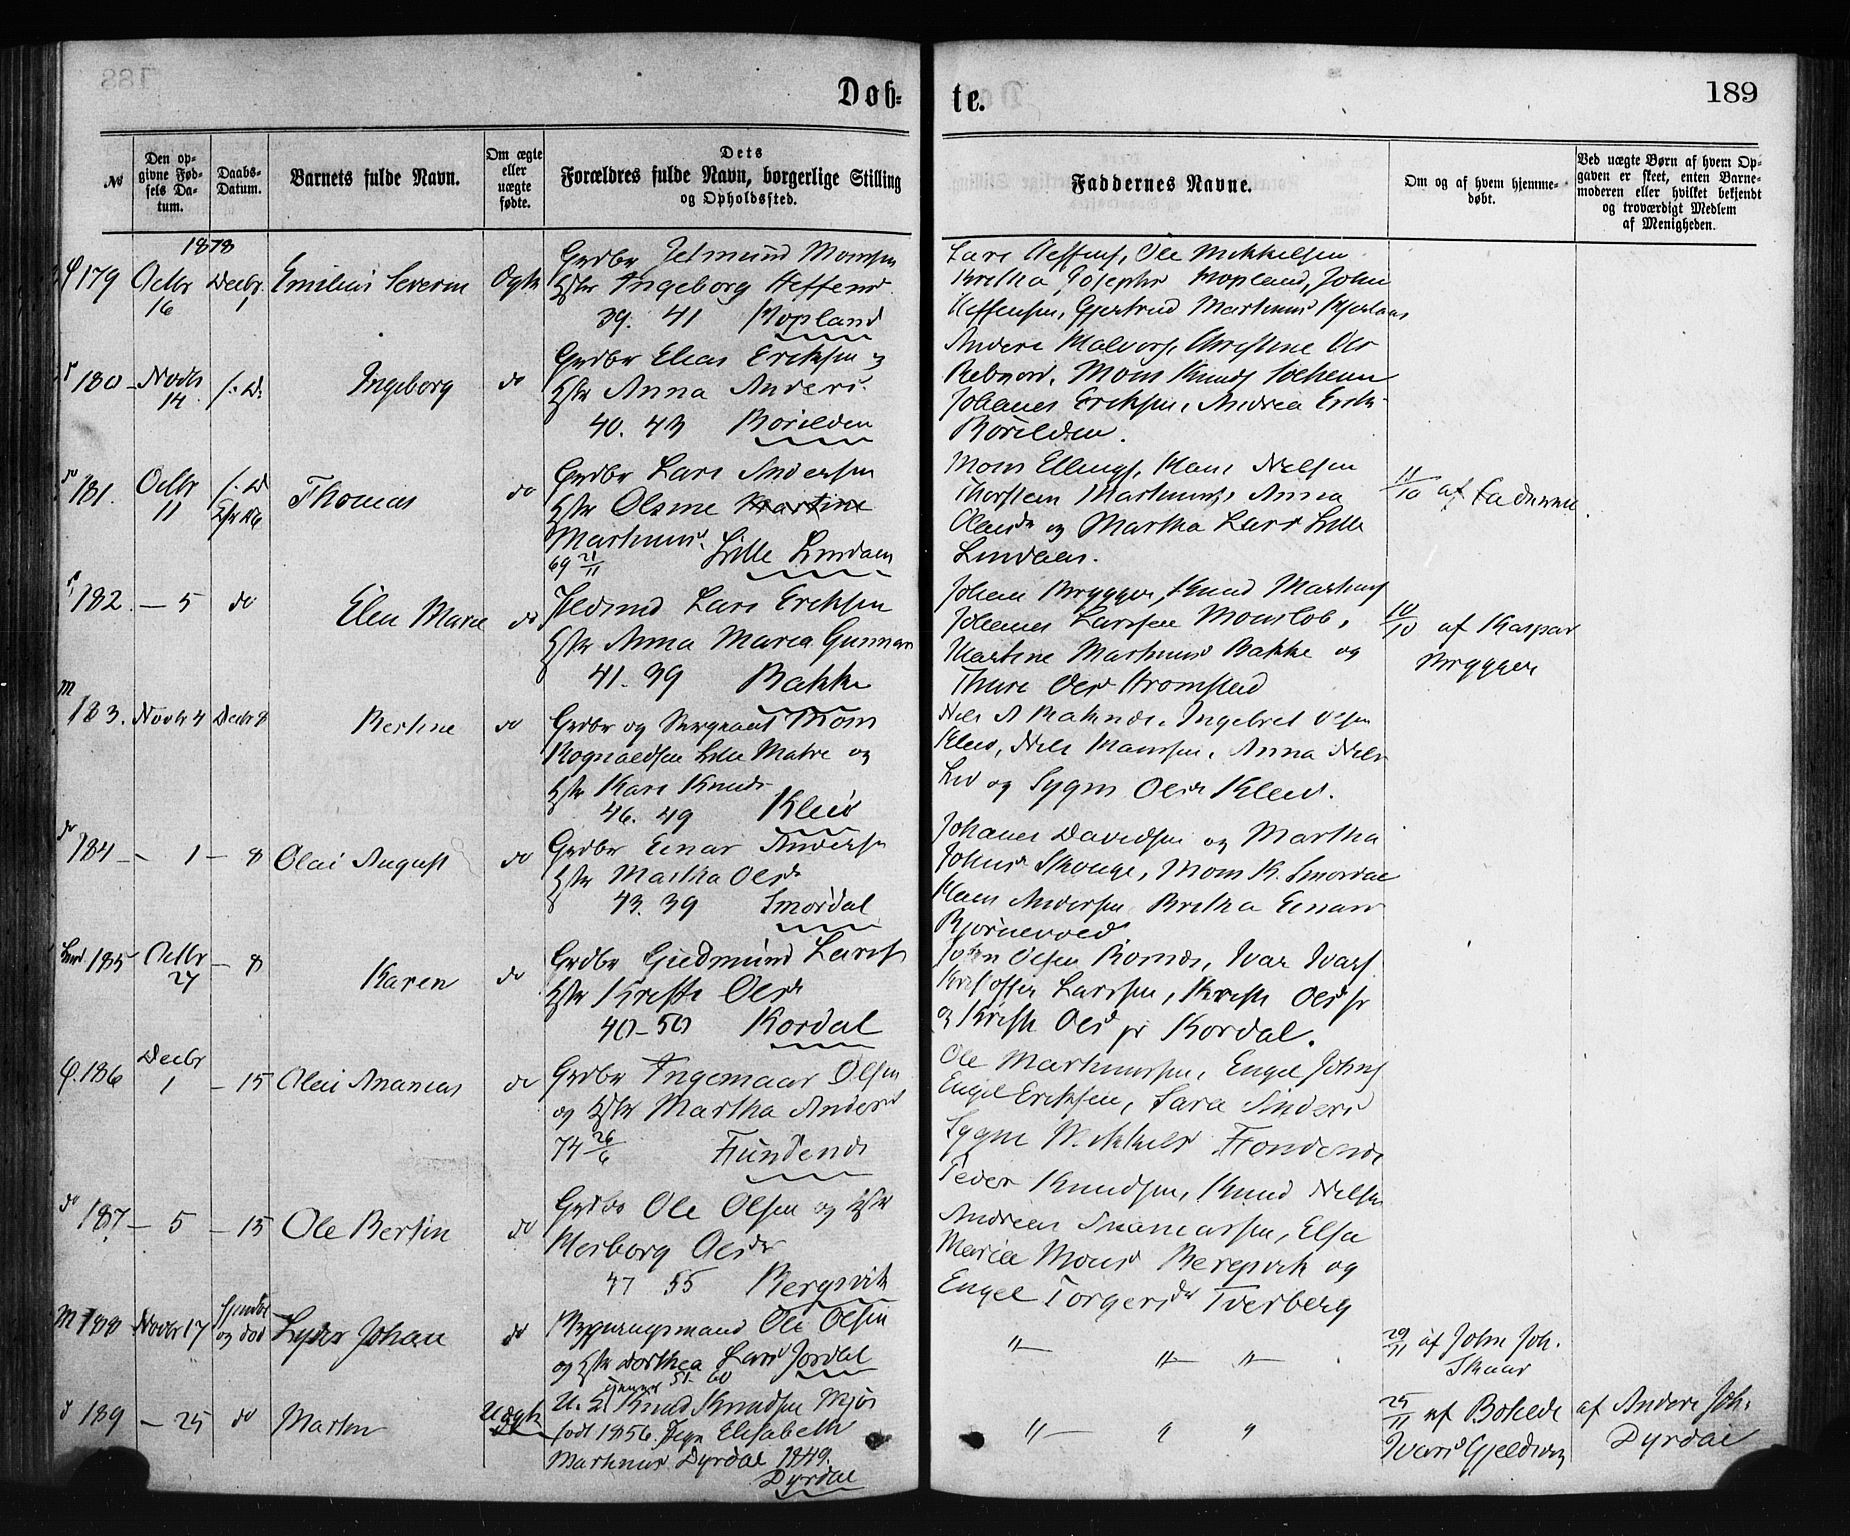 Døb-
te.
189
No
Den op-
givne Fød-
sels Da-
tum.
Daabs-
Datum.
Barnets fulde Navn.
Om ægte
eller
uægte
fødte.
Dets
Forældres fulde Navn, borgerlige Stilling
og Opholdssted.
Faddernes Navne.
Om og af hvem hjemme-
døbt.
Ved uægte Børn af hvem Op-
gaven er skeet, enten Barne-
moderen eller hvilket bekjendt
og troværdigt Medlem
af Menigheden.
1878
179 Octbr 16 Decbr 1 Emilius Severin Ægte
Grdbr Monsen
Hstr Ingeborg Steffensd
39. 41 Hopland
Lars Steffens, Ole Mikkelsen
Bretha Josephsd Hopland, John
Steffensen, Gjertrud Martinusd
180 Novbr 14 s. D. Ingeborg do
Grdbr Elias Eriksen og
Hstr Anna Andersd.
40. 43 Borilden
Anders Halvors, Christine Olsd
Mons Knuds
Johanes Eriksen, Andrea Eriks
Borilden.
181. Octbr 11 s. D Thomas do
Grdbr Lars Andersen
Hstr Olsine Martine
Martinusd.
69 21/11 Lille Lindaas
Mons Ellings, Hans Nielsen
Thorstein Martinus, Anna
Olsdr og Martha Larsd Lille
Lindaas.
11/10 af Faderen.
182. — 5 do Elen Marie do
Lars Eriksen
Hstr Anna Maria Gunnars
41. 39 Bakke
Johan Brygger, Knud Martins
Johannes Larssen Monslob,
Martine Martinusd Bakke og
Olsd
10/10 af Kaspar
Brygger
183. Novbr 4 Decbr 8 Bertine do
Grdbr og Sergeant Mons
Rognaldsen Lille Matre og
Hstr Kari Knudsd
46. 49 Kleiv
Ingebret Olsen
Kleiv, Nils Monssen, Anna Nils
og Sygni Olsdr Kleiv.
184 — 1 — 8 Olai August do
Grdbr Einar Andersen
Hstr Martha Olsdr
43. 39 Smørdal
Johanes Davidsen og Martha
Johnsd Skouge, Mons K. Smørdal
Hans Andersen Bretha Einarsd
Bjørnevold
185 Octbr 27 — 8 Karen do
Grdbr Gudmund Larssen
Hstr Kristi Olsdr
40 – 50 Kordal
John Olsen Ivar Ivars
Kristoffer Larssen, Kristi Olsd sr
og Kristi Olsd jr Kordal.
186 Decbr 1 — 15 Olai Ananias do
Grdbr Ingemaar Olsen
og Hstr Martha Andersd
74 26/6 Fundenes
Ole Martinussen, Engel Johns
Engel Eriksen, Sara Andersd
Sygni Mikkelsd Fondenes
187. — 5 — 15 Ole Bertin do
Grdbr Ole Olsen og Hstr
Olsdr
47 55 Bergsvik
Peder Knudsen, Knud Nilsen
Andreas Ananiassen, Elsa
Maria Monsd Bergsvik og
Engel Torgersdr Tverberg
188 Novbr 17 og død Lyder Johan do
Ole Olsen
og Hstr Dorthea Larsd Jordal
51. 60
" " "
29/11 af John Joh.
Skaar
189 — 25 do Martin Uægte
U. K. Knud Knudsen
født 1856. Pige Elisabeth
Martinusd Dyrdal 1849.
Dyrdal
" " "
25/11 af Bohilde
Ivarsd
af Anders Joh.
Dyrdal